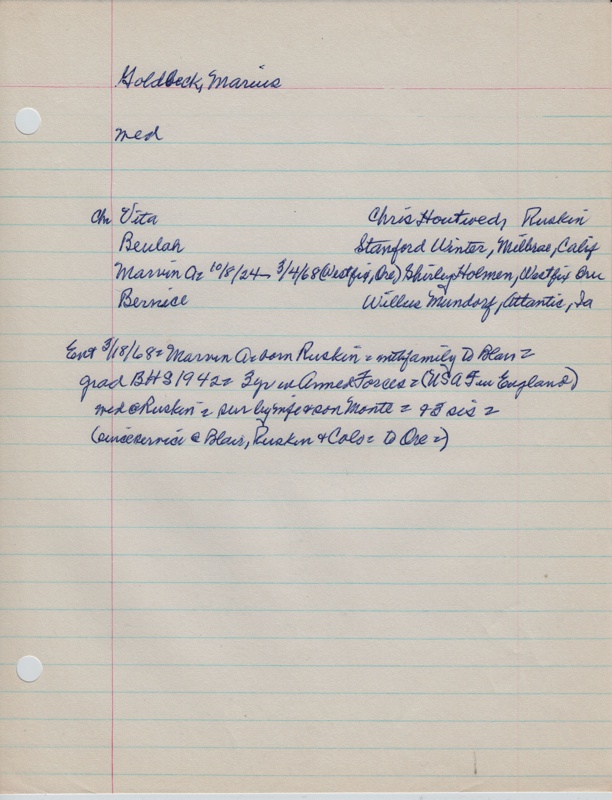 Goldbeck, Marius
med
Ch Vita Chris Houtwed, Ruskin
Beulah Stanford Winter, Milbrae, Calif
Marvin A= 10/8/24 - 3/4/68 (Westfir, Ore) Shirley Holmen, Westfir Ore
Bernice Willus Mundorf, Atlantic, Ia
Ent 3/18/68 = Marvin A = born Ruskin = m family to Blair =
grad BHS 1942 = 3 yr in Armed Forces = (USAF in England)
med @ Ruskin = sur by wife & son Monte = & 3 sis =
(since service @ Blair, Ruskin & Cols = to Ore =)